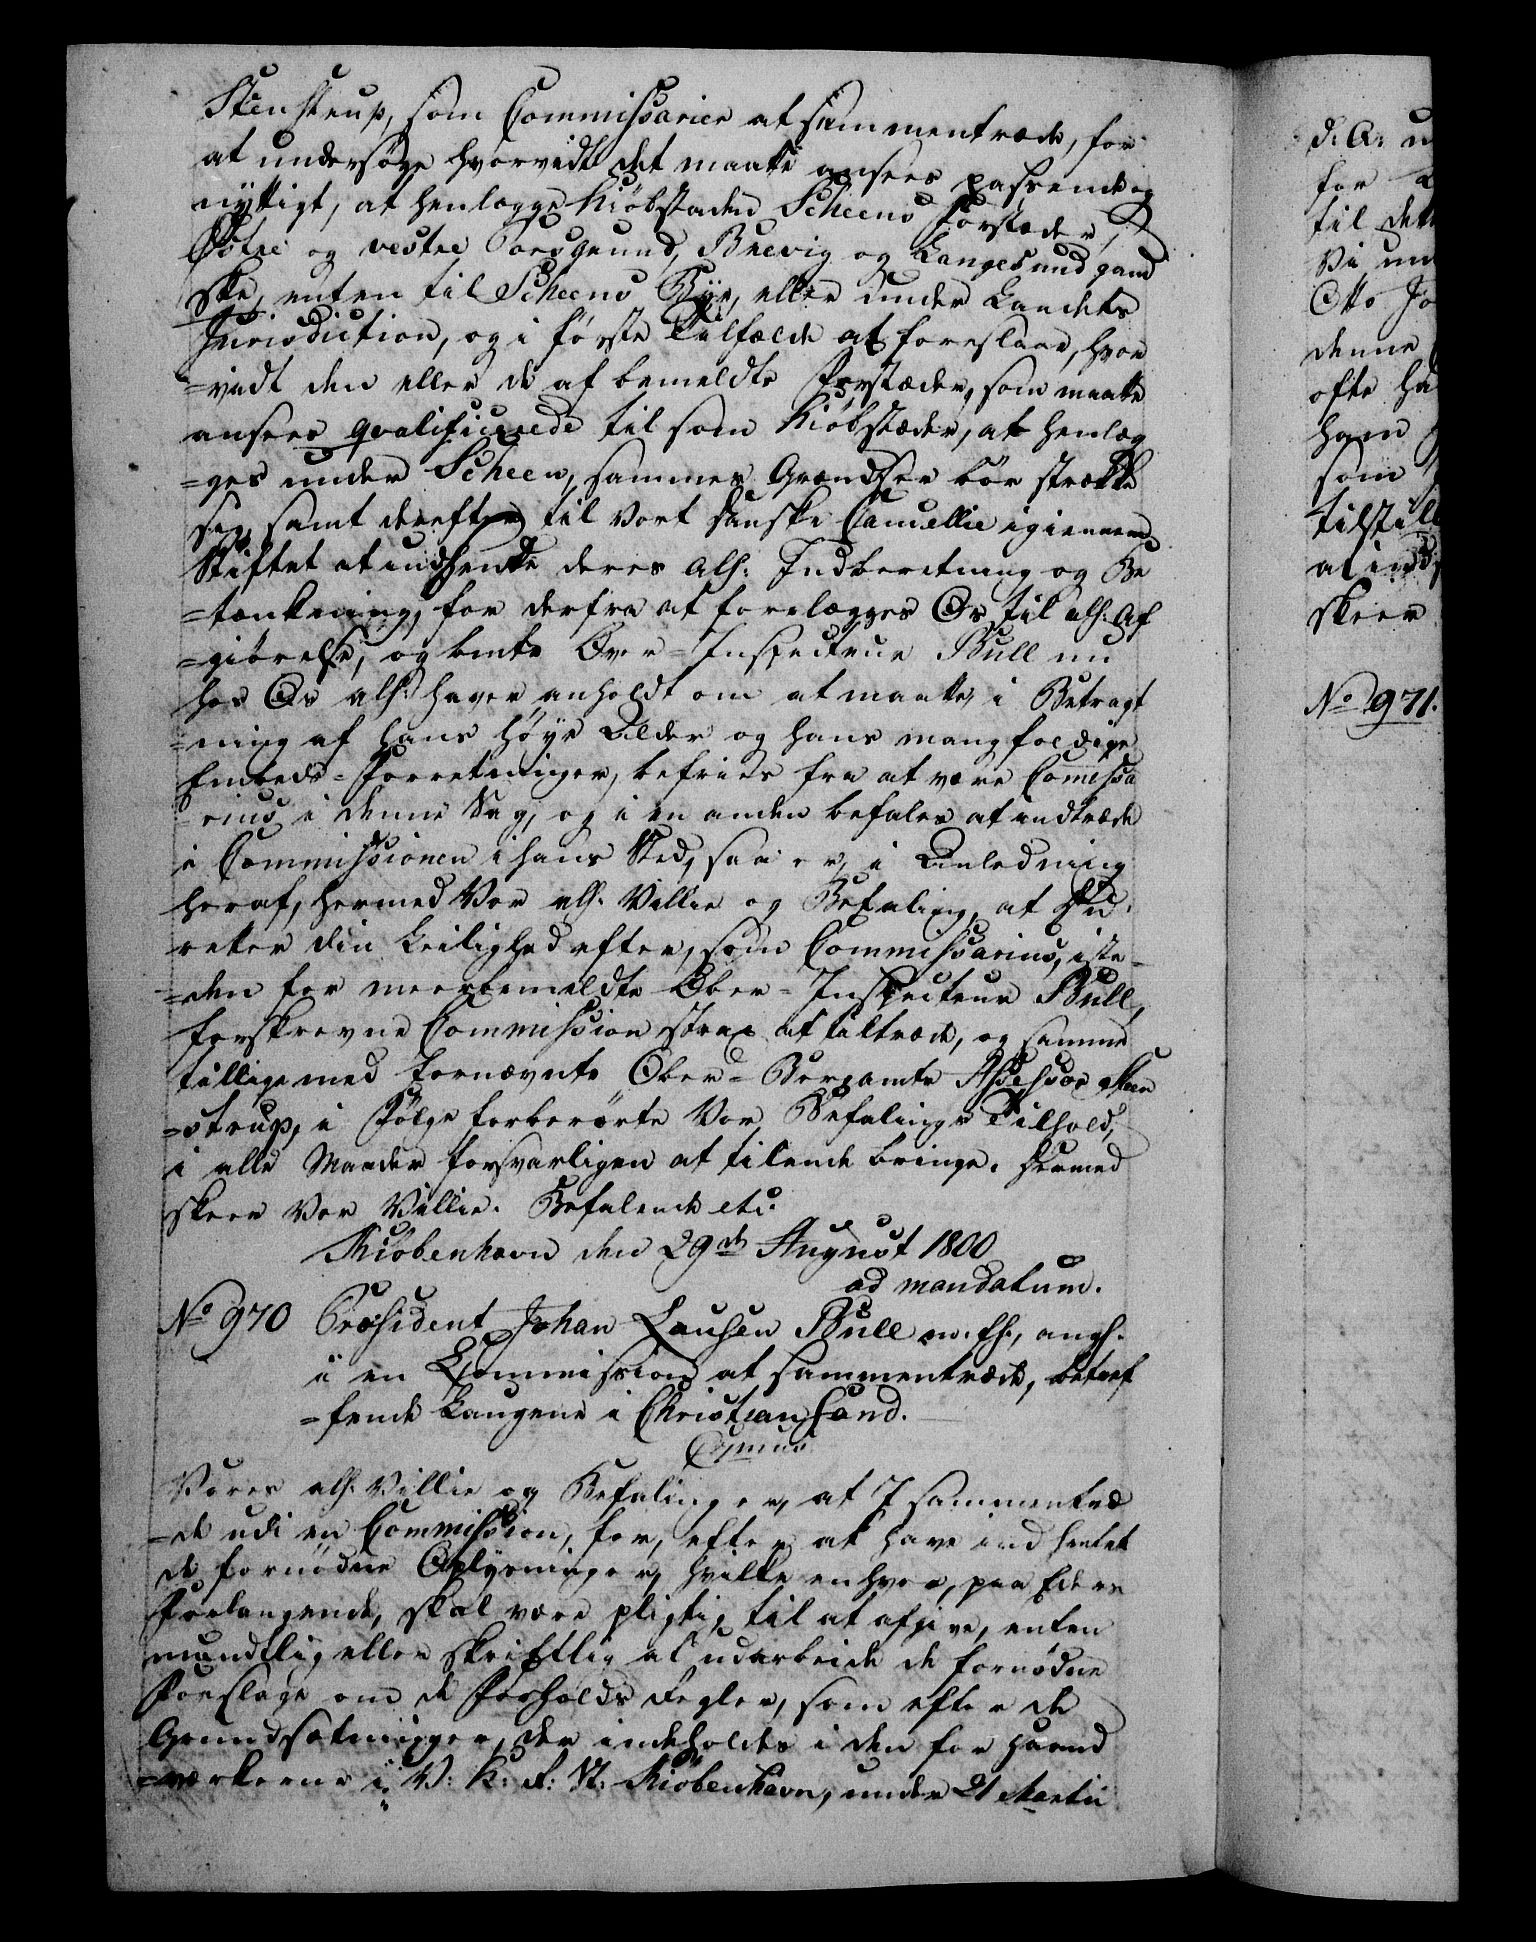 Stenstrup, som Commissarier at sammentræde, for
at undersøge hvorvidt det maatte ansees passende og
nyttigt, at henlægge Kiøbstaden Scheens Forstæder,
Østre og vestre Porsgrund, Brevig og Langesund gand
ske, enten til Scheens Bye, eller under Landets
Jurisdiction, og i første Tilfælde at foreslaae, hvor
=vidt den eller de af bemeldte Forstæder, som maatte
ansees qvalificerede til som Kiøbstæder, at henlæg
=ges under Scheen, sammes Grændser bør strække
sig, samt derefter til Vort danske Cancellie igiennem
Stiftet at indsende deres alh: Indberetning og Be
=tænkning, for derfra at forelægges Os til alh: Af
=giørelse, og bmte Over=Inspecteur Bull nu
hos Os alh: haver anholdt om at maatte, i Betragt
=ning af hans høye Alder og hans mangfoldige
Embeds=Forretninger, befries fra at være Comissa
=rius i denne Sag, og i en anden befales at indtræde
i Commissionen i hans Sted, saa er, i Anledning
heraf, hermed Vor alh: Villie og Befaling, at Du
retter din Leilighed efter, som Commissarius, iste=
=den for meerbemeldte Ober=Inspecteur Bull,
forskrevne Commission strax at tiltræde, og samme
tilligemed fornævnte Ober=Bergamts Assessor Sten
=strup, i Følge forberørte Vor Befalings Tilhold,
i alle Maader forsvarligen at tilende bringe. Hermed
skeer Vor Villie. Befalende etc.
Kiøbenhavn den 29de August 1800
ad mandatum.
No 970 Præsident Johan Lausen Bull m: fl:, angl.
i en Commission at sammentræde, betref
=fende Laugene i Christiansand.
Vores alh: Villie og Befaling er, at I sammentræ
=de udi en Commission, for, efter at have indhentet
de fornødne Oplysninger, hvilke enhver, paa Eders
Forlangende, skal være pligtig til at afgive, enten
mundtlig eller skriftlig at udarbeide de fornødne
Forslage om de Forholds Regler, som efter de
Grundsætninger, der indeholdes i den for Haand
=værkerne i V: K: R: St: Kiøbenhavn, under 21 Martii
d: A: u
for
til det
Vi un
Otto Jo
denne
ofte ha
ham
som
tilstill
al ind
skeer
No 971.